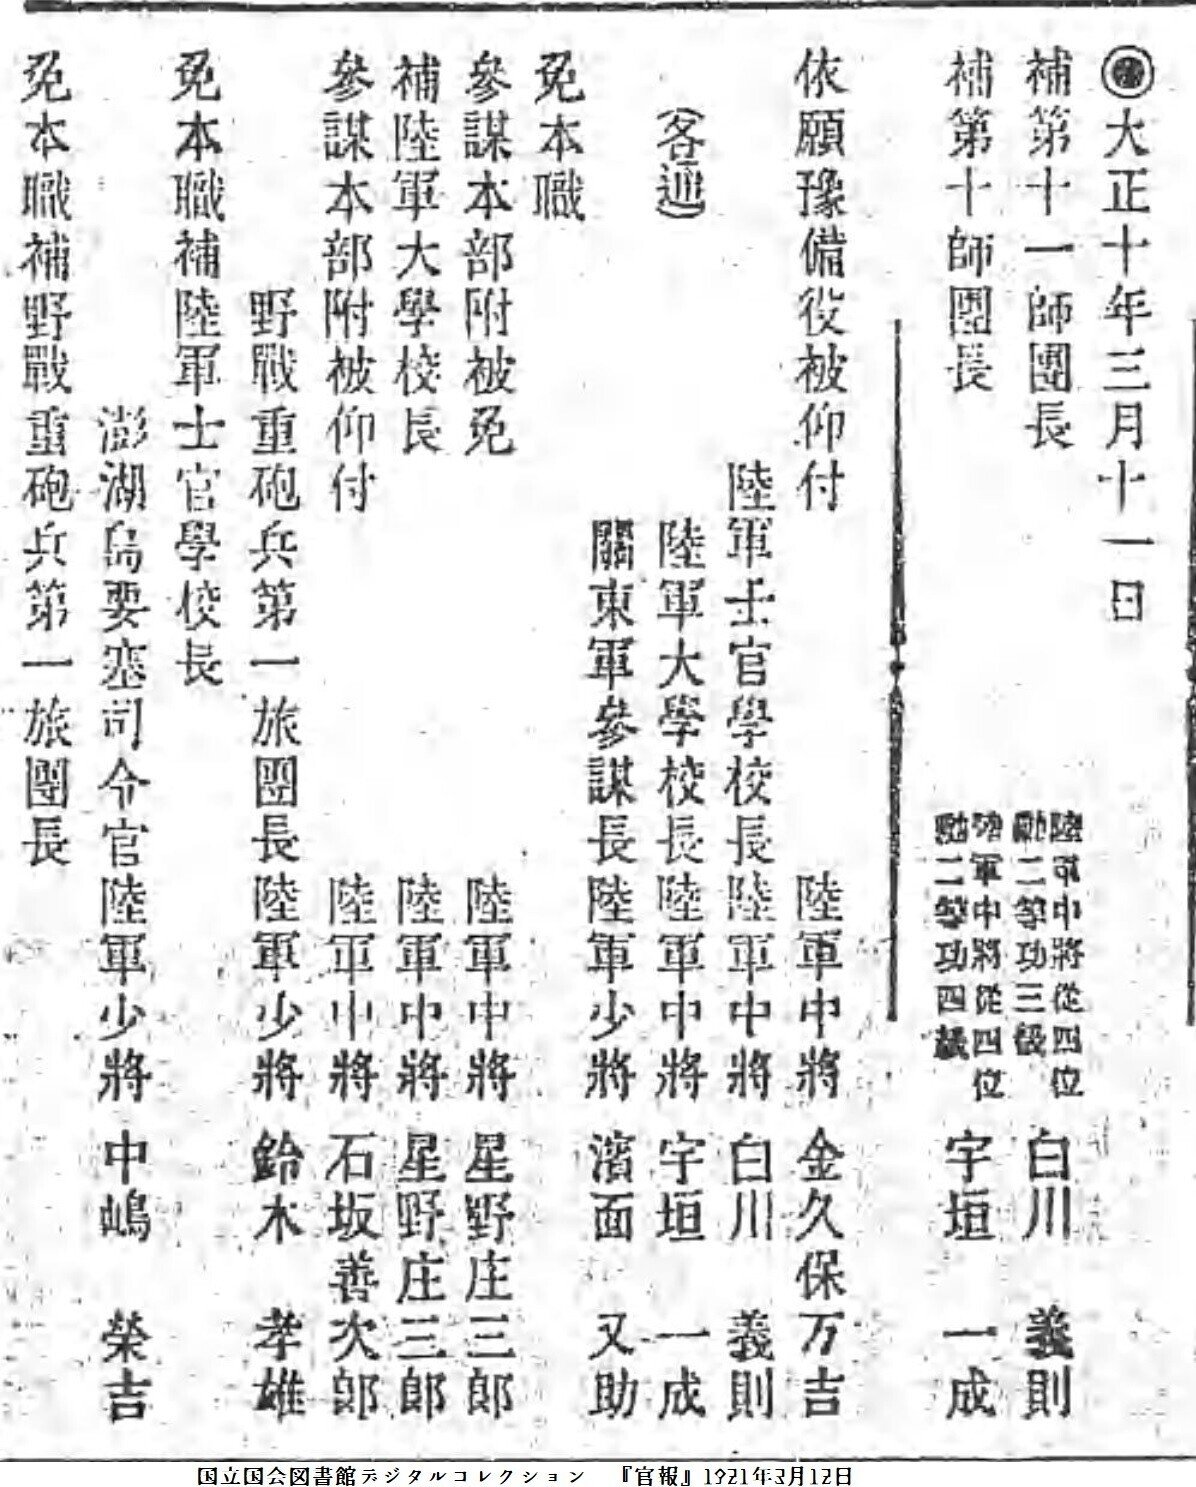 大正十年三月十一日
補第十一師團長
陸軍中將從四位
勳二等功三級
白川義則
補第十師團長
陸軍中將從四位
勳二等功四級
宇垣一成
依願豫備役被仰付
陸軍中將 金久保万吉
陸軍士官學校長陸軍中將 白川義則
(各通)
陸軍大學校長陸軍中將 宇垣一成
關東軍參謀長陸軍少將 濱面又助
免本職
參謀本部附被免
陸軍中將 星野庄三郎
補陸軍大學校長
陸軍中將 星野庄三郎
參謀本部附被仰付
陸軍中將 石坂善次郎
野戰重砲兵第一旅團長陸軍少將 鈴木孝雄
免本職補陸軍士官學校長
澎湖島要塞司令官陸軍少將 中嶋榮吉
免本職補野戰重砲兵第一旅團長
国立国会図書館デジタルコレクション 『官報』1921年3月12日